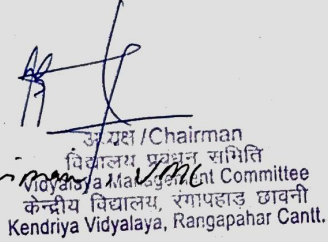 अध्यक्ष /Chairman
विद्यालय प्रबंधन समिति
Vidyalaya Management Committee
केन्द्रीय विद्यालय, रंगापहाड़ छावनी
Kendriya Vidyalaya, Rangapahar Cantt.